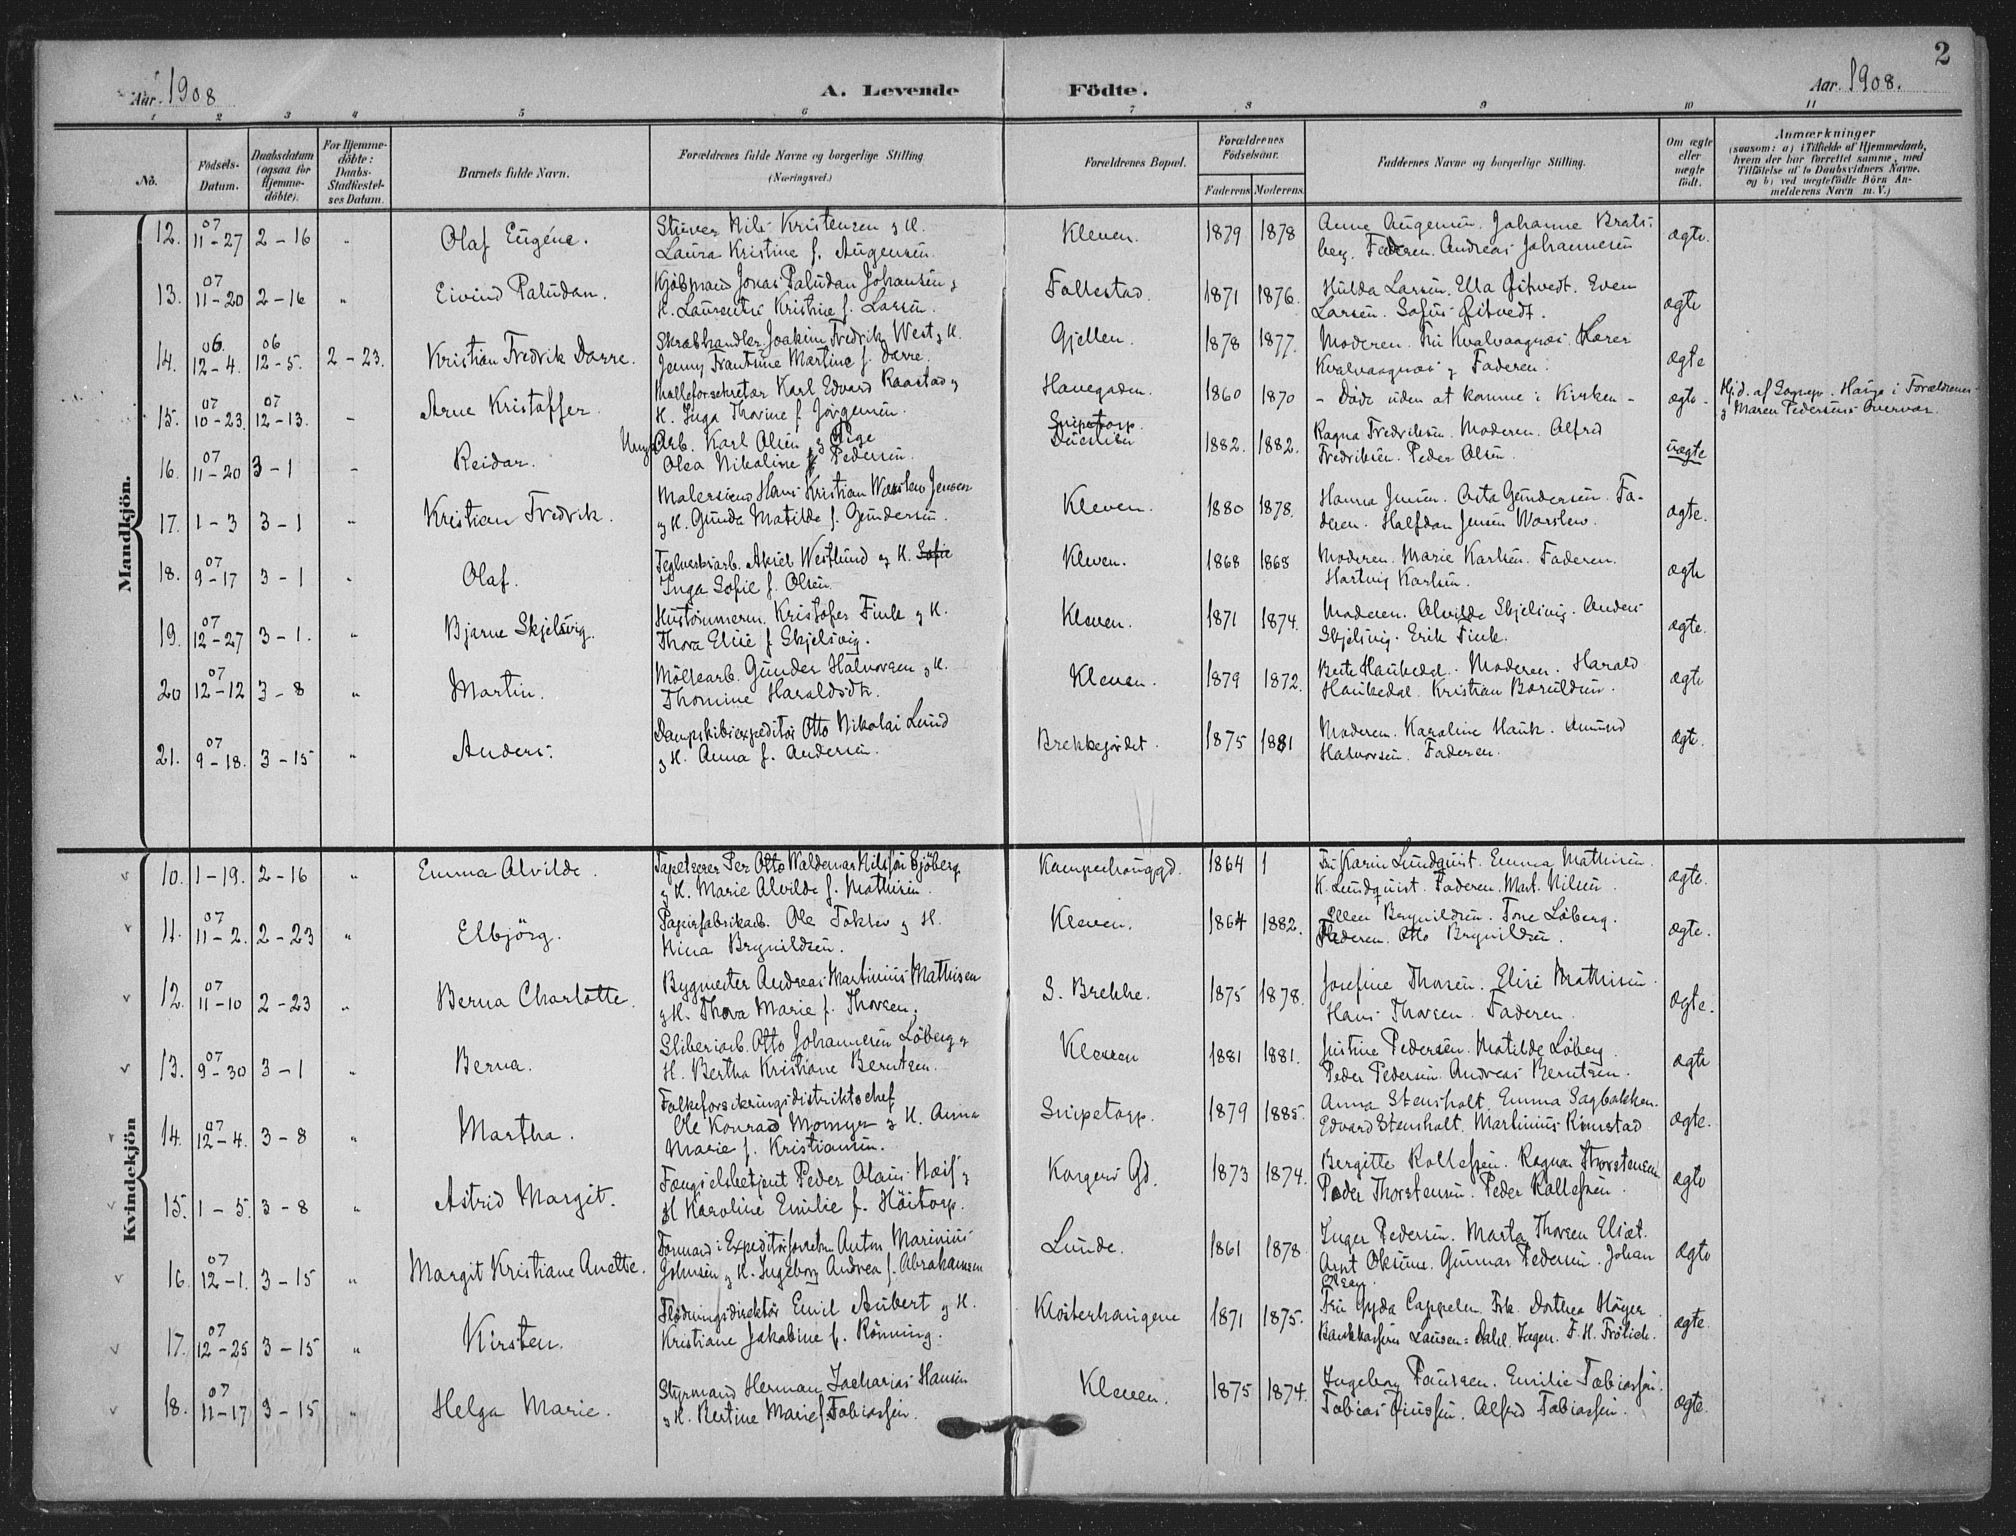 2
Aar. 1908
A. Levende
Födte.
Aar. 1908.
1 2 3 4 5 6 7 8 9 10 11
No.
Födsels-
Datum.
Daabsdatum
(ogsaa for
Hjemme-
döbte).
For Hjemme-
döbte:
Daabs-
Stadfæstel-
ses Datum.
Barnets fulde Navn.
Forældrenes fulde Navne og borgerlige Stilling
(Næringsvei.)
Forældrenes Bopæl.
Forældrenes
Födselsaar.
Faderens Moderens
Faddernes Navne og borgerlige Stilling.
Om ægte
eller
uægte
födt.
Anmærkninger
(saasom: a) i Tilfælde af Hjemmedaab,
hvem der har forrettet samme, med
Tilföielse af to Daabsvidners Navne.
og b) ved uægtefödte Börn An-
melderens Navn m. V.)
Mandkjön.
12. 07 11-27 2-16 " Olaf Eugéne. Stuver Nils Kristensen og H.
Laura Kristine f. Augensen. Kleven. 1879 1878 Anne Augensen. Johanne Brats-
berg. Faderen. Andreas Johannesen ægte.
13. 07 11-20 2-16 " Eivind Paludan. Kjöbmand Jonas Paludan Johansen og
H. Laurentse Kristine f. Larsen. Follestad. 1871 1876. Hulda Larsen. Ella Gitvedt. Even
Larsen. Sofus Gitvedt. ægte
14. 06. 12-4. 06 12-5. 2-23. Kristian Fredrik Dorre. Skræbhandler Joakim Fredrik West og H.
Jenny Frantsine Martine f. Dorre. Gjellen. 1878 1877. Moderen. Fru Kvalvaagnæs. Lærer
Kvalvaagnæs og Faderen. ægte
15. 07 10-23. 07 12-13. - Arne Kristoffer. Karl Edvard Raastad og
H. Inga Thorine f. Jörgensen. Havegaden. 1860 1870 - Döde uden at komme i Kirken - ægte - Hj.d. af Sognepr. Hauge i Forældrenes
og Maren Pedersens Overvær.
16. 07 11-20 3-1 - Reidar. Ungk. Arb. Karl Olsen og Pige
Olea Nikoline Pedersen. Snipetorp. 1882. 1882. Ragna Fredriksen. Moderen. Alfred
Fredriksen. Peder Olsen. uægte
17. 1-3 3-1 " Kristian Fredrik. Malersvend Hans Kristian Worslew Jensen
og H. Gunda Matilde f. Gundersen. Kleven. 1880 1878. Hanna Jensen. Asta Gundersen. Fa-
deren. Halfdan Jensen Worslew. ægte.
18. 07 9-17 3-1 " Olaf. Teglverksarb. Aksel Westlund og H. Sofie
Inga Sofie f. Olsen. Kleven. 1868 1868 Moderen. Marie Karlsen. Faderen.
Hartvig Karlsen. ægte
19. 07 12-27 3-1. " Bjarne Skjelsvig. Hustömmerm. Kristofer Fink og H.
Thora Elise f. Skjelsvig. Kleven. 1871 1874. Moderen. Alvilde Skjelsvig. Anders
Skjelsvig. Erik Fink. ægte.
20 07 12-12 3-8 " Martin. Möllearb. Gunder Halvorsen og H.
Thomine Haraldsdtr. Kleven. 1879 1872. Berte Haukedal. Moderen. Harald
Haukedal. Kristian ægte
21. 07 9-18. 3-15 " Anders. Dampskibsexpeditör Otto Nikolai Lund
og H. Anna f. Andersen. Brekkejordet. 1875 1881 Moderen. Karoline Hauk. Amund
Halvorsen. Faderen. ægte.
Kvindekjön
10. 1-19. 2-16 " Emma Alvilde. Tapetserer Per Otto Waldemar Nilsson Sjöberg
og H. Marie Alvilde f. Mathisen. Kamperhauggd. 1864 1 Fru Karin Lundquist. Emma Mathisen.
K. Lundquist. Faderen. Mart. Nilsen. ægte.
11. 07 11-2. 2-23 " Elbjörg. Papirfabrikarb. Ole Tokler og H.
Nina Brynildsen. Kleven. 1864 1882. Ellen Brynildsen. Tone Löberg.
Faderen. Otto Brynildsen. ægte.
12. 07 11-10 2-23 " Berna Charlotte. Bygmester Andreas Martinius Mathisen
og H. Thora Marie f. Thorsen. S. Brekke. 1875 1878. Josefine Thorsen. Elise Mathisen.
Hans Thorsen. Faderen. ægte.
13. 07 9-30 3-1 " Berna. Sliberiarb. Otto Johannesen Löberg og
H. Bertha Kristiane Berntsen. Kleven 1881 1881. Justine Pedersen. Matilde Löberg.
Peder Pedersen. Andreas Berntsen. ægte
14. 07 12-4. 3-8 " Martha. Folkeforsikringsdistriktschef
Ole Konrad Momyr og H. Anna
Marie f. Kristiansen. Snipetorp. 1879 1885. Anna Stensholt. Emma Sagbakken.
Edvard Stensholt. Martinius Rimstad ægte.
15. 1-5. 3-8 " Astrid Margit. Fængselsbetjent Peder Olaus Næss og
H Karoline Emilie f. Höitorp. Korgers Gd. 1873 1874. Bergitte Kolletzen. Ragna Thorstensen
Peder Thorstensen. Peder Kolletzen. ægte
16. 07 12-1. 3-15 " Margit Kristiane Anette. Formand i Expeditörforretn. Anton Marinius
Johnsen og H. Ingeborg Andrea f. Abrahamsen Lunde. 1861 1878 Inger Pedersen. Marta Thorsen Eliset.
Arnt Oksum. Gunnar Pedersen. Johan
Olsen. ægte
17. 07 12-25 3-15 " Kirsten. Flödningsdirektör Emil Aubert og H.
Kristiane Jakobine f. Rönning. Klosterhaugene 1871 1875. Fru Gyda Cappelen. Frk. Dorthea Höyer.
Bankkasserer Lausen-Dahl. Ingen. F. H. Frölich. ægte.
18. 07 11-17 3-15 " Helga Marie. Styrmand Herman Zacharias Hansen
og H. Bertine Marie f. Tobiassen. Kleven. 1875 1874. Ingeborg Paulsen. Emilie Tobiassen.
Tobias Alfred Tobiassen. ægte.